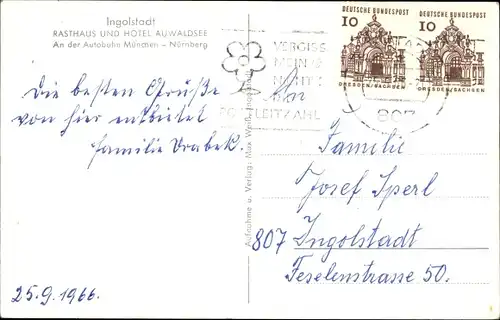 Ingolstadt
RASTHAUS UND HOTEL AUWALDSEE
An der Autobahn München – Nürnberg
10 DEUTSCHE BUNDESPOST
DRESDEN/SACHSEN
10 DEUTSCHE BUNDESPOST
DRESDEN/SACHSEN
VERGISS
MEIN
NICHT
POSTLEITZAHL
807
Aufnahme u. Verlag: Max
Die besten Grüße
von hier entbietet
Familie Vrabek.
An
Familie
Josef Sperl
807 Ingolstadt
Feselenstrasse 50.
25.9.1966.